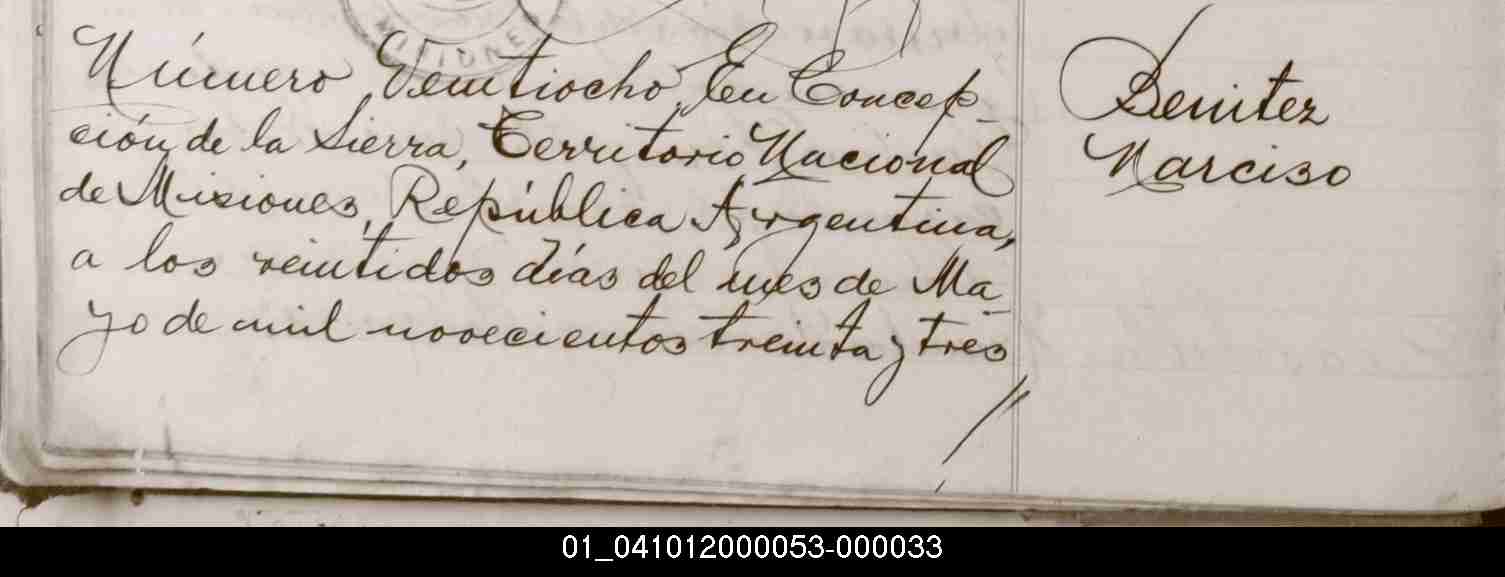 MISIONES
Número Veintiocho, En Concep-
ción de la Sierra, Territorio Nacional
de Misiones, República Argentina,
a los veintidos días del mes de Ma-
yo de mil novecientos treinta y tres
//
Benitez
Narciso
01_041012000053-000033